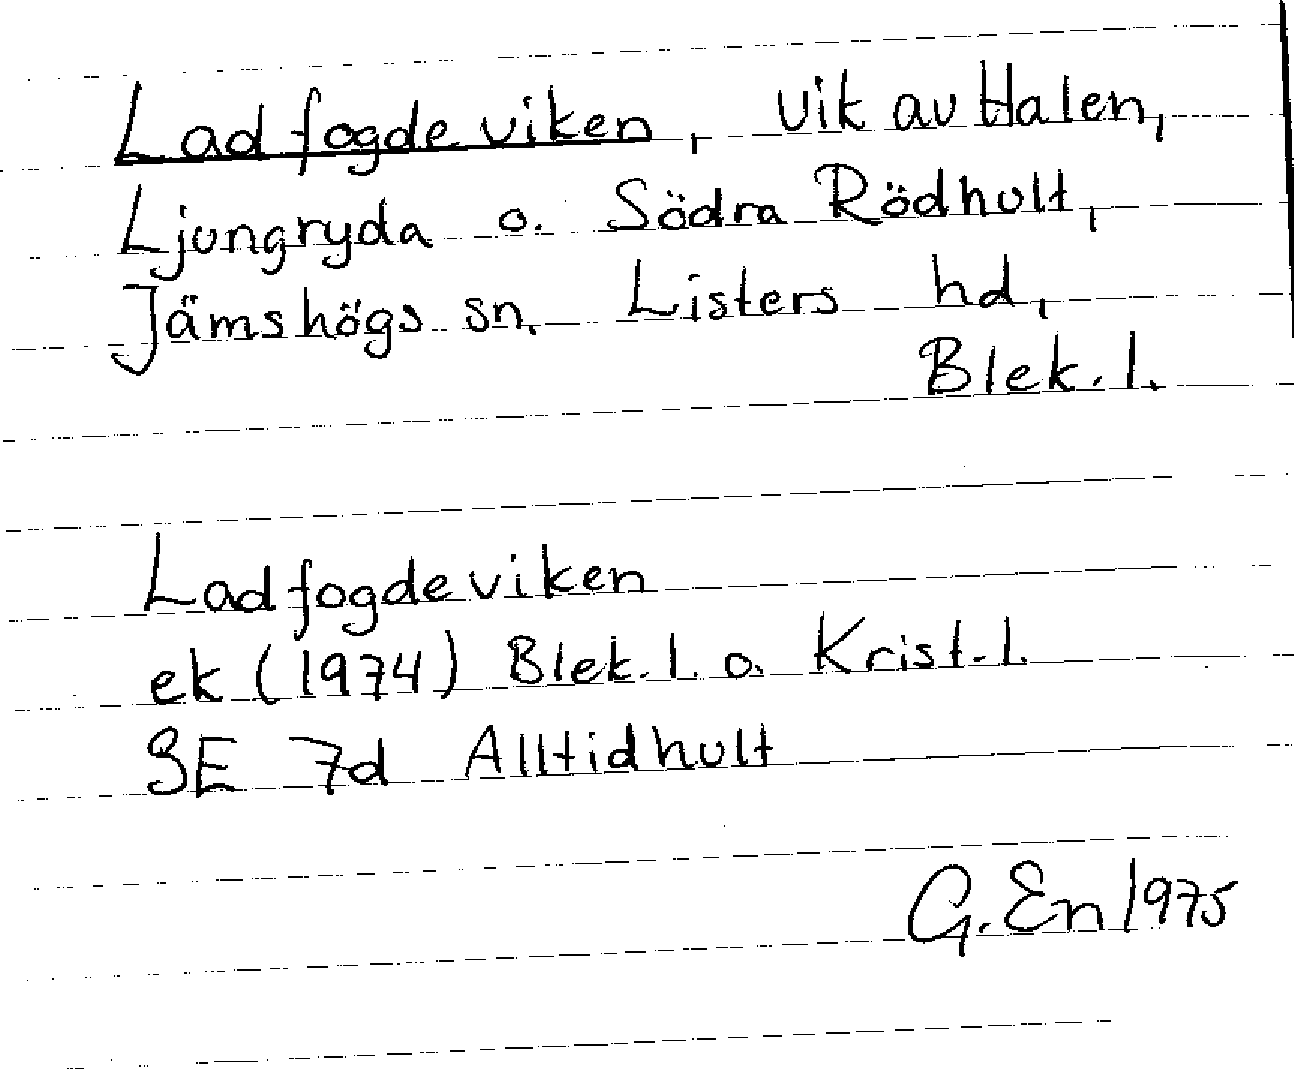 Ladfogdeviken, vik av Halen,
Ljungryda o. Södra Rödhult,
Jämshögs sn. Listers hd,
Blek. l.
Ladfogdeviken
ek (1974) Blek. l. o. Krist. l.
3E 7d Alltidhult
G. En 1975